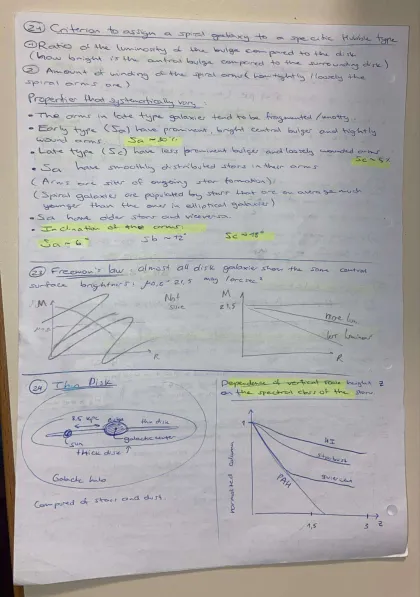 21 Criterion to assign a spiral galaxy to a specific Hubble type
① Ratio of the luminosity of the bulge compared to the disk
(how bright is the central bulge compared to the surrounding disk)
② Amount of winding of the spiral arms (how tightly / loosely the
spiral arms are)
Properties that systematically vary
• The arms in late type galaxies tend to be fragmented /
• Early type (Sa) have prominent, bright central bulges and tightly
wound arms Sa ~ 30%
• Late type (Sc) have less prominent bulges and loosely wounded arms
Sc ~ 5%
• Sa have smoothly distributed stars in their arms
(Arms are sites of ongoing star formation)
(Spiral galaxies are populated by stars that are on average much
younger than the ones in elliptical galaxies)
• Sa have older stars and viceversa
• Inclination of the arms:
Sa ~ 6° Sb ~ 12° Sc ~ 18°
23 Freeman's law: almost all disk galaxies show the same central
surface brightness: μ0,B ~ 21,5 mag/arcsec²
M
R
Not
sure
M
21,5
more lum.
less luminous
R
24 Thin Disk
8.5 kpc
thin disk
sun
galactic center
thick disc
Galactic halo
Composed of stars and dust.
Dependence of vertical scale height z
on the spectral class of the stars
normalized column
1
HI
Starburst
PAH
1,5
3
z